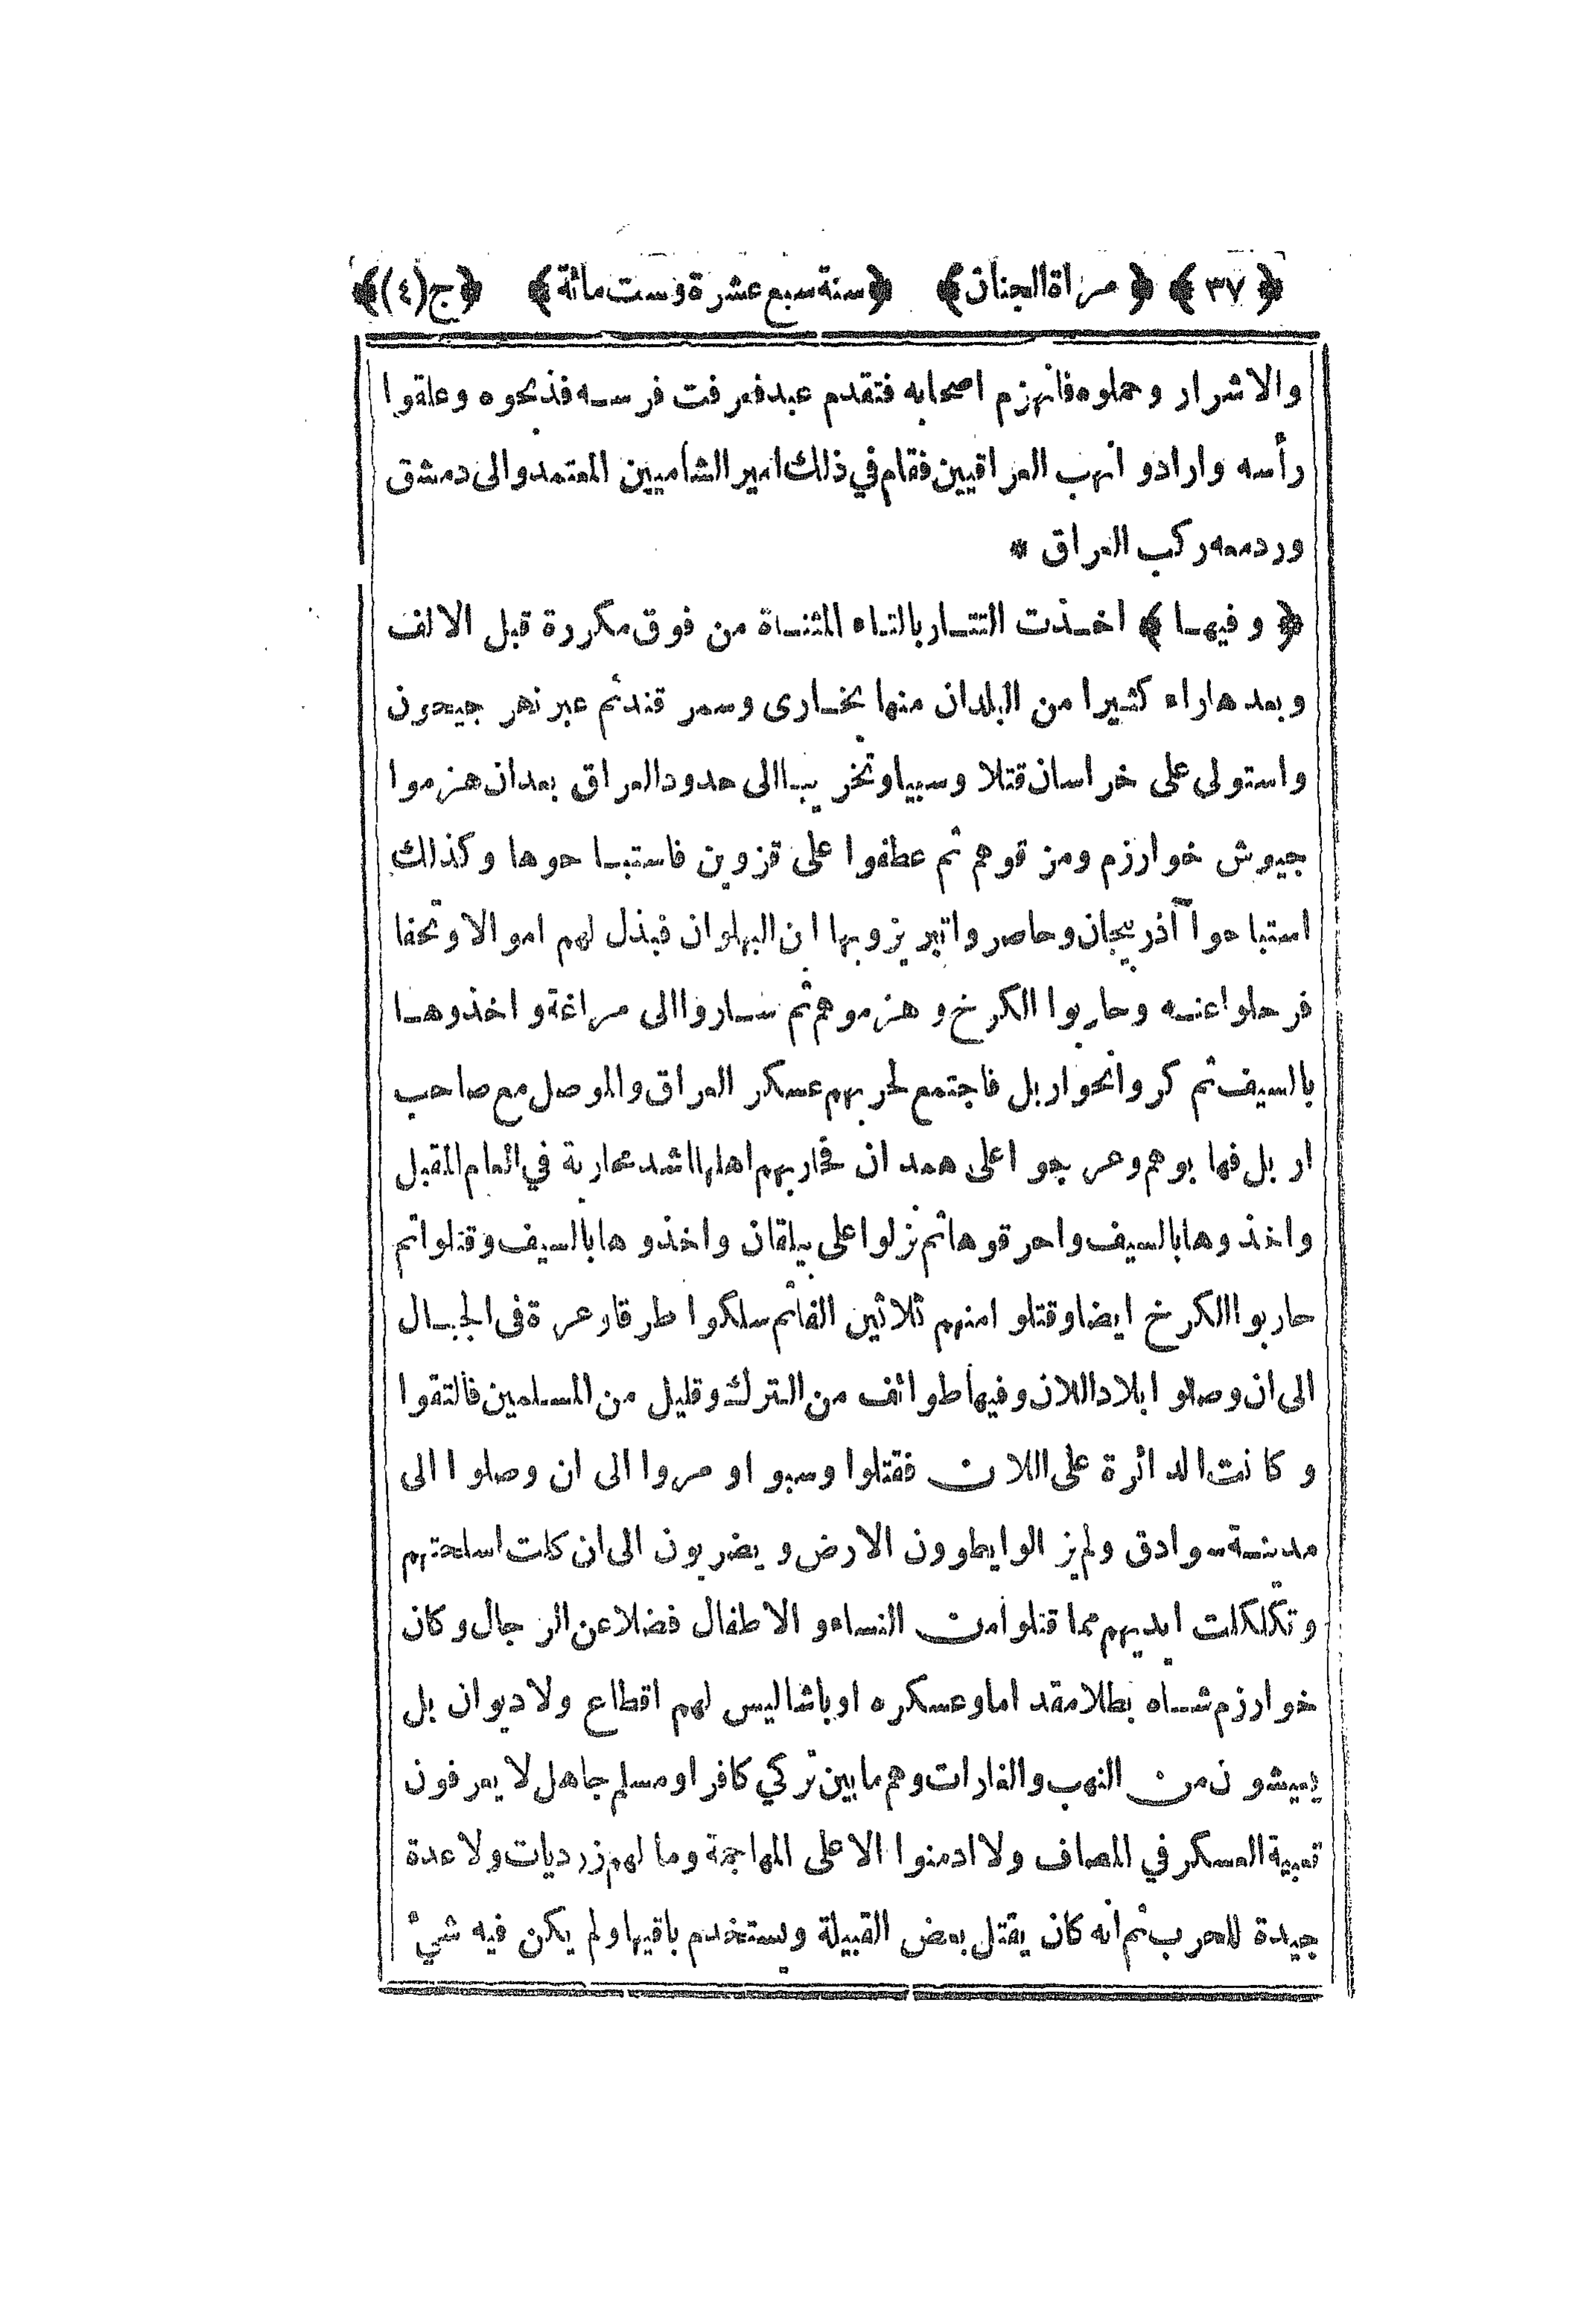 ﴿٣٧﴾ ﴿مراة الجنان﴾ ﴿سنة سبع عشرة وست مائة﴾ ﴿ج(٤)﴾
والاشرار وحملوه فانهزم اصحابه فتقدم عبد فعرفت فرسه فذبحوه وعلقوا
رأسه وارادوا نهب العراقيين فقام في ذلك امير الشاميين المعتمد والى دمشق
ورد معه ركب العراق *
﴿وفيها﴾ اخذت التتار بالتاء المثناة من فوق مكررة قبل الالف
وبعدها راء كثيرا من البلدان منها بخارى وسمرقند ثم عبر نهر جيحون
واستولى على خراسان قتلا وسبيا وتخريبا الى حدود العراق بعد ان هزموا
جيوش خوارزم ومزقوهم ثم عطفوا على قزوين فاستباحوها وكذلك
استباحوا آذربيجان وحاصروا تبريز وبها ابن البهلوان فبذل لهم اموالا وتحفا
فرحلوا عنه وحاربوا الكرخ وهزموهم ثم ساروا الى مراغة واخذوها
بالسيف ثم كروا نحو اربل فاجتمع لحربهم عسكر العراق والموصل مع صاحب
اربل فهابوهم وعرجوا على همدان فحاربهم اهلها اشد محاربة في العام المقبل
واخذوها بالسيف واحرقوها ثم نزلوا على بيلقان واخذوها بالسيف وقتلوا ثم
حاربوا الكرخ ايضا وقتلوا منهم ثلاثين الفا ثم سلكوا طرقا وعرة فى الجبال
الى ان وصلوا بلاد اللان وفيها طوائف من الترك وقليل من المسلمين فالتقوا
وكانت الدائرة على اللان فقتلوا وسبوا ومروا الى ان وصلوا الى
مدينة سوادق ولم يزالوا يطوون الارض ويضربون الى ان كلت اسلحتهم
وتكلكلت ايديهم مما قتلوا من النساء والاطفال فضلا عن الرجال وكان
خوارزم شاه بطلا مقداما وعسكره اوباشا ليس لهم اقطاع ولا ديوان بل
يعيشون من النهب والغارات وهم ما بين تركي كافر او مسلم جاهل لا يعرفون
تعبية العسكر في المصاف ولا ادمنوا الا على المهاجمة وما لهم زرديات ولا عدة
جيدة للحرب ثم انه كان يقتل بعض القبيلة ويستخدم باقيها ولم يكن فيه شئ